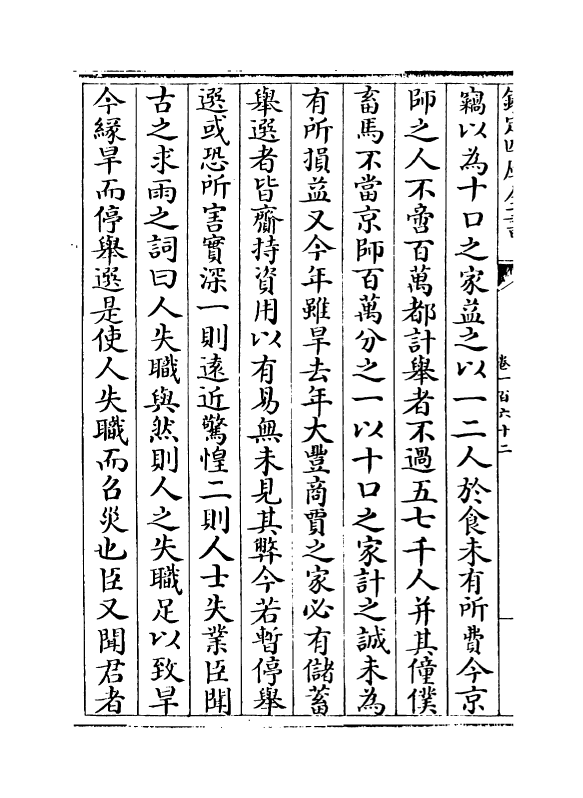 欽定四庫全書
卷一百六十二
竊以為十口之家益之以一二人於食未有所費今京
師之人不啻百萬都計舉者不過五七千人并其僮僕
畜馬不當京師百萬分之一以十口之家計之誠未為
有所損益又今年雖旱去年大豐商賈之家必有儲蓄
舉選者皆齎持資用以有易無未見其弊今若暫停舉
選或恐所害實深一則遠近驚惶二則人士失業臣聞
古之求雨之詞曰人失職與然則人之失職足以致旱
今緣旱而停舉選是使人失職而召災也臣又聞君者